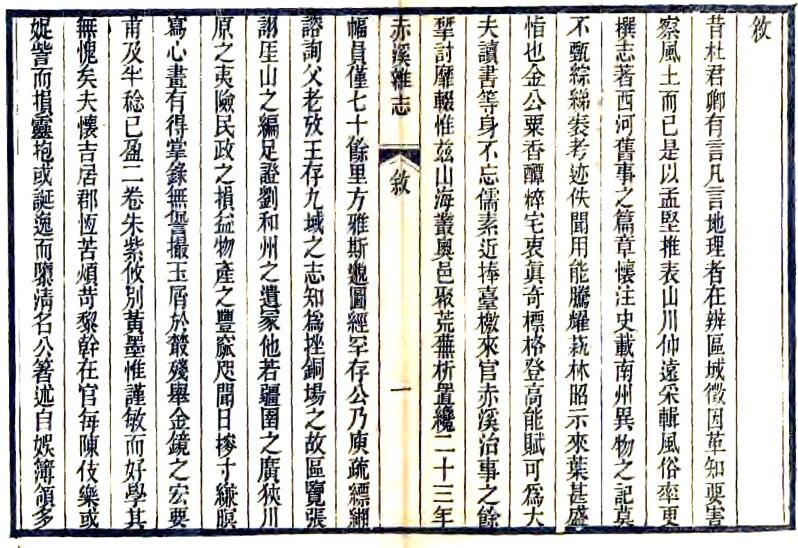 敘
昔杜君卿有言凡言地理者在辨區域徵因革知要害
察風土而已是以孟堅推表山川仲遠采輯風俗率更
撰志著西河舊事之篇章懷注史載南州異物之記莫
不甄綜緗袠考迹佚聞用能騰耀蓺林昭示來葉甚盛
恉也金公粟香醰粹宅衷眞奇標格登高能賦可爲大
夫讀書等身不忘儒素近捧臺檄來官赤溪治事之餘
揅討靡輟惟玆山海叢奧邑聚荒蕪析置纔二十三年
赤溪雜志
敘
一
幅員僅七十餘里方雅斯邈圖經罕存公乃庾疏縹緗
諮詢父老攷王存九域之志知爲挫銅場之故區覽張
詡厓山之編足證劉和州之遺冢他若疆圉之廣狹川
原之夷險民政之損益物產之豐窳咫聞日椮寸縑瞑
寫心畫有得掌錄無訾撮玉屑於叢殘舉金鏡之宏要
甫及半稔已盈二卷朱紫攸別黃墨惟謹敏而好學其
無愧矣夫懷吉居郡恆苦煩苛黎幹在官每陳伎樂或
娖訾而損靈抱或誕逸而隳淸名公箸述自娛簿領多